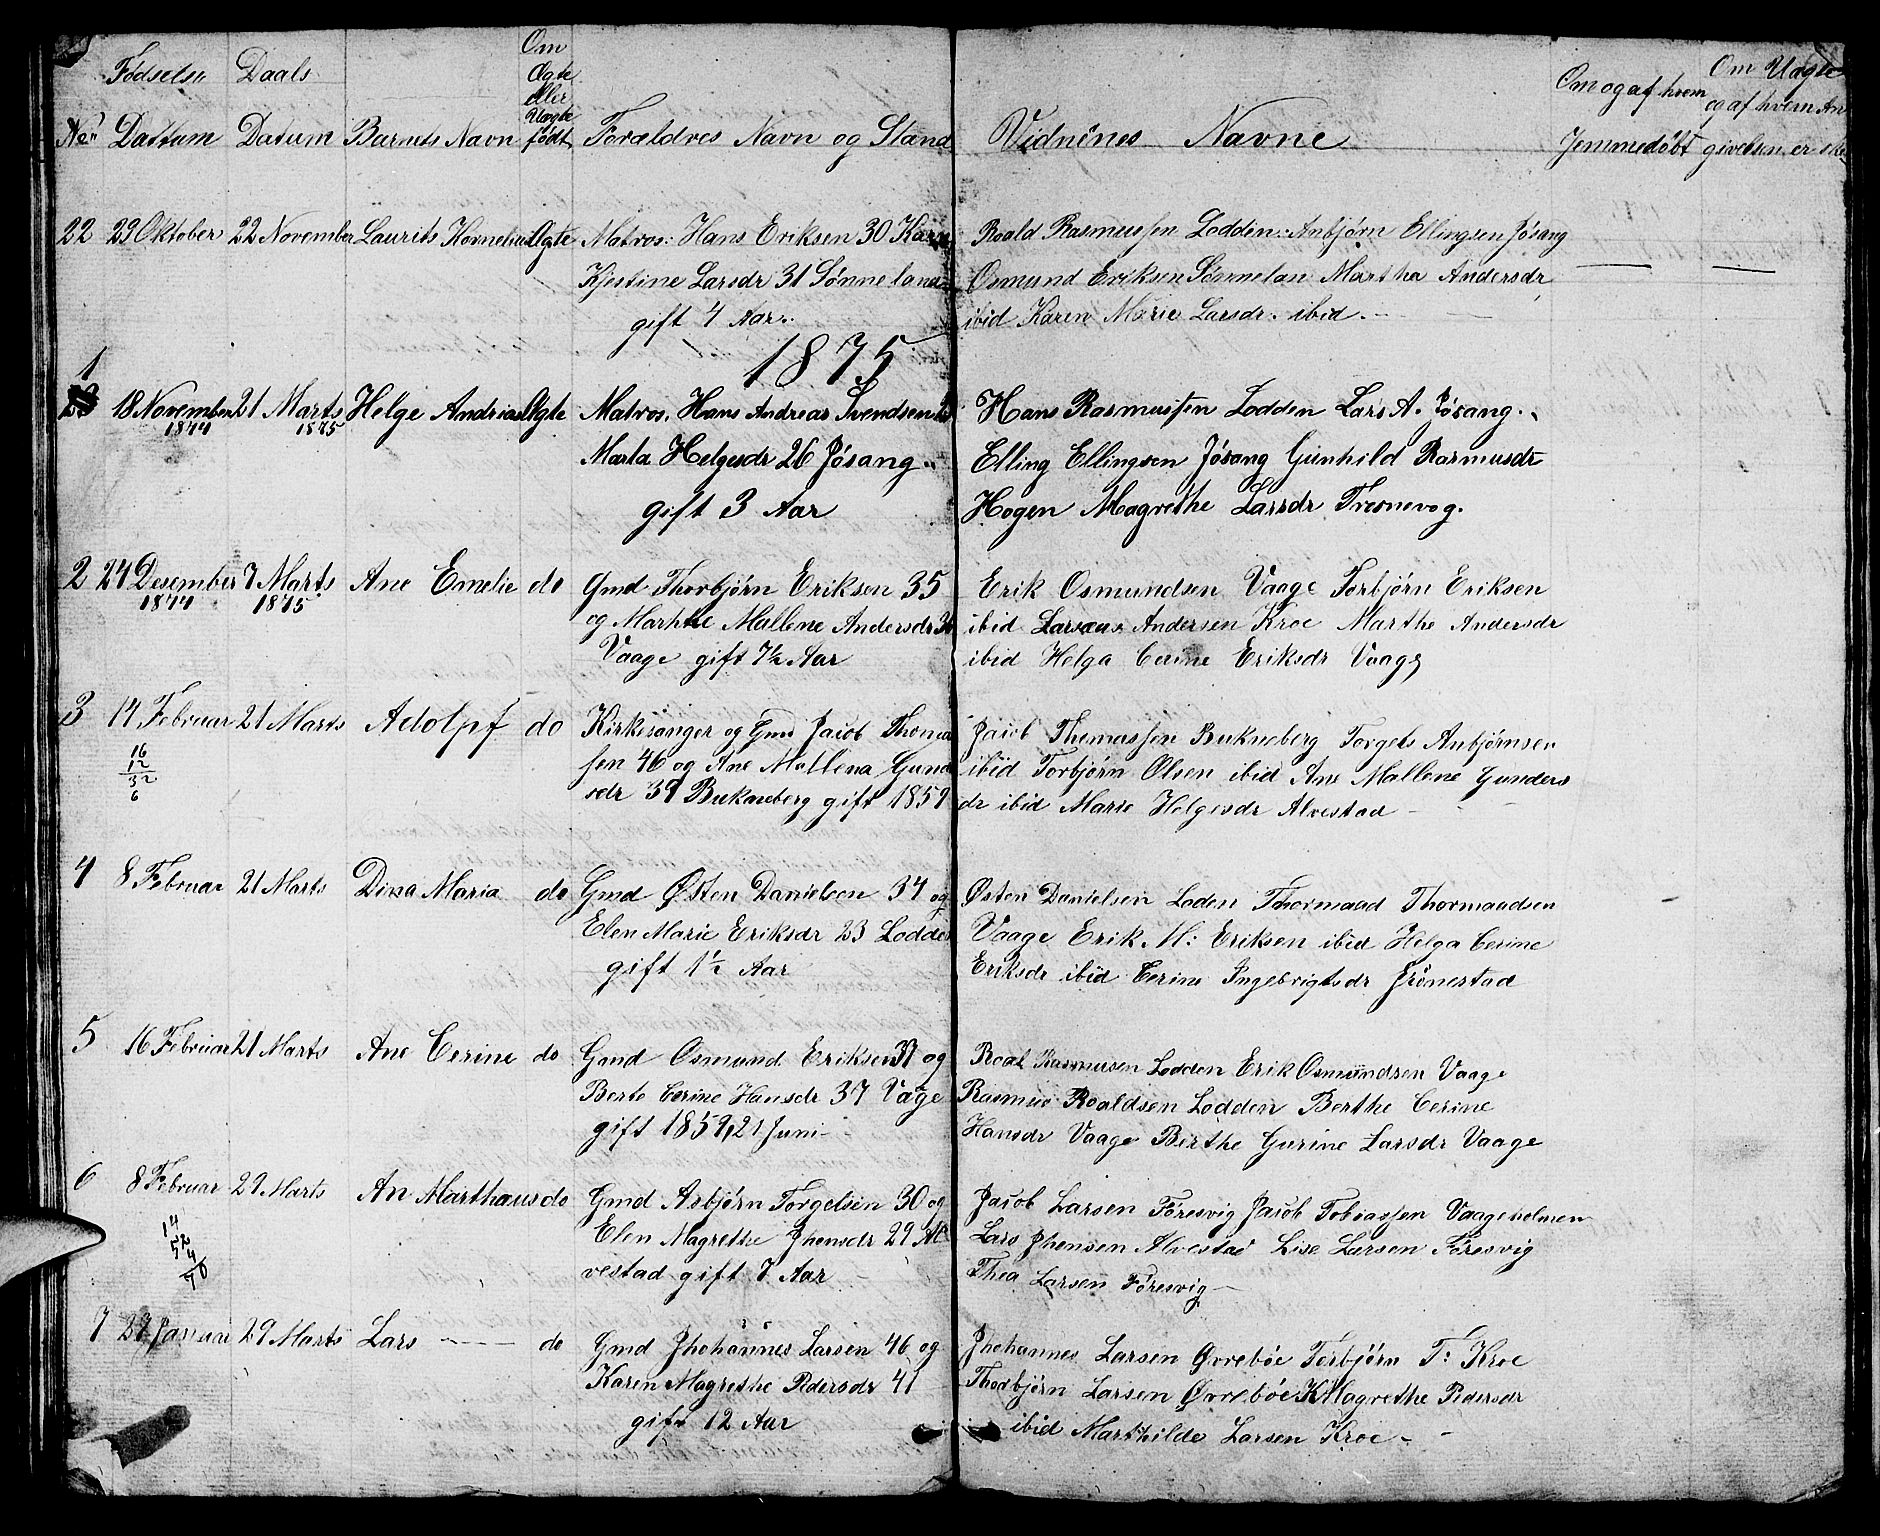 Fødselse Daabs Om Ægte eller Uægte født
No Dattum Datum Barnets Navn Forældres Navn og Stand Vidnines Navne Om og af hvem Jemmedøbt Om Uægte og af hvem An givelsen er ske
22 29 Oktober 22 November Laurits Kornelius Ægte Matros: Hans Eriksen 30 Karn
Kjestine Larsdr 31 Sønneland
gift 4 Aar.
Roald Rasmussen Lodden Anbjørn Ellingsen Jøsang
Osmund Eriksen Sønnelan Martha Andersdr
ibid Karen Marie Larsdr. ibid.
1875
1 18 November 1874 21 Marts 1875 Helge Andrias Ægte Matros. Hans Andreas Svendsen
Marta Helgesdr 26 Jøsang
gift 3 Aar
Hans Rasmussen Lodden Lars A. Jøsang.
Elling Ellingsen Jøsang Gunhild Rasmusdr
Hogen Magrethe Larsdr Tresnevog.
2 24 Desember 1874 7 Marts 1875 Ane Emelie do Gmd Thorbjørn Eriksen 35
og Marhte Mallene Andersdr
Vaage gift 7½ Aar
Erik Osmundsen Vaage Torbjørn Eriksen
ibid Larseus Andersen Kroe Marthe Andersdr
ibid Helga Cerine Eriksdr Vaage
3 14 Februar 21 Marts Adolpf do Kirkesanger og Gmd Jacob Thomas
sen 46 og Ane Mallena Gund
sdr 39 Bukneberg gift 1859
16
12
32
6
Jacob Themassen Bukneberg Torgels Anbjørnsen
ibid Torbjørn Olsen ibid Ane Mallene Gunders
dr ibid Marie Helgesdr Alvestad
4 8 Februar 21 Marts Dina Maria do Gmd Østen Danielsen 34 og
Elen Marie Eriksdr 23 Lodden
gift 1½ Aar
Østen Danielsen Loden Thormaad Thormaadsen
Vaage Erik M: Eriksen ibid Helga Cerine
Eriksdr ibid Cerine Ingebrigtsdr Grønestad
5 16 Februar 21 Marts Ane Cerine do Gmd Osmund Eriksen 39 og
Berte Cerine Hansdr 37 Vage
gift 1859, 21 Juni
Roal Rasmusen Lodden Erik Osmundsen Vaage
Rasmus Roaldsen Lodden Berthe Cerine
Hansdr Vaage Berthe Gurine Larsdr Vaage
6 8 Februar 29 Marts An Marthaus do Gmd Asbjørn Torgelsen 30 og
Elen Magrethe Jhensdr 29 Al
vestad gift 7 Aar
14
52
4
70
Jacob Larsen Føresvig Jacob Tobiassen Vaageholmen
Lars Jhensen Alvestad Lise Larsen Føresvig
Thea Larsen Føresvig
7 27 Januar 29 Marts Lars do Gmd Jhohannes Larsen 46 og
Karen Magrethe Pedersdr 41
gift 12 Aar
Jhohannes Larsen Øvrebøe Torbjørn T: Kroe
Thorbjørn Larsen Øvrebøe K Magrethe Pedersdr
ibid Marthilde Larsen Kroe